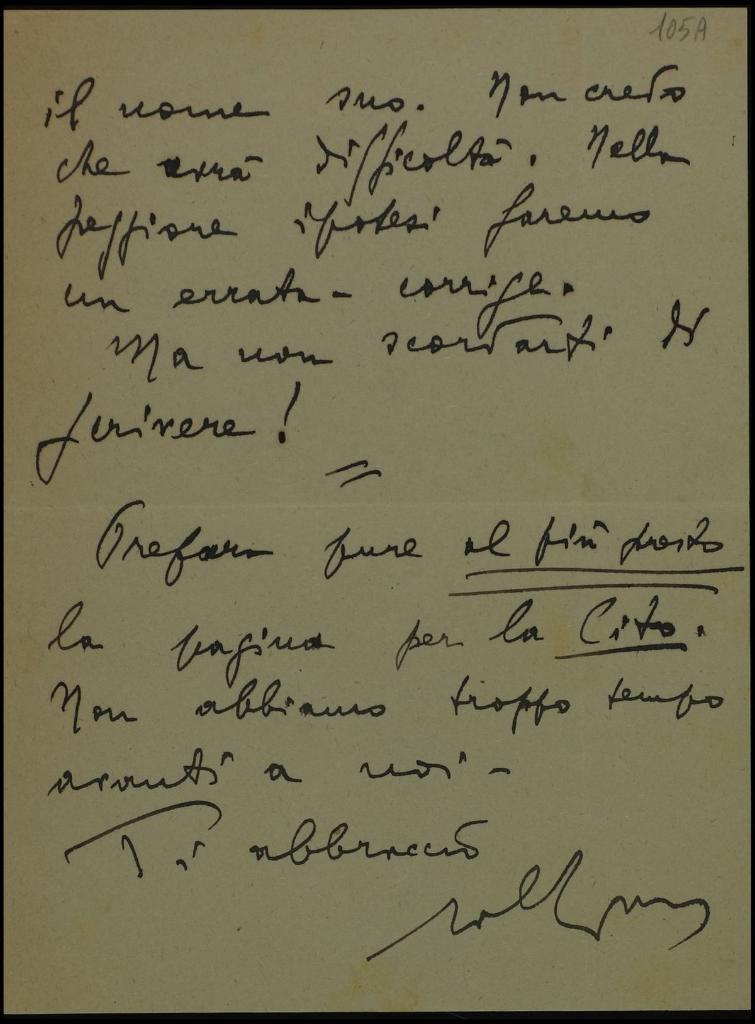 105A
il nome suo. Non credo
che avrà difficoltà. Nella
peggiore ipotesi faremo
un errata-corrige.
Ma non scordarti di
scrivere!
=
Prepara pure al più presto
la pagina per la Cito.
Non abbiamo troppo tempo
avanti a noi-
Ti abbraccio